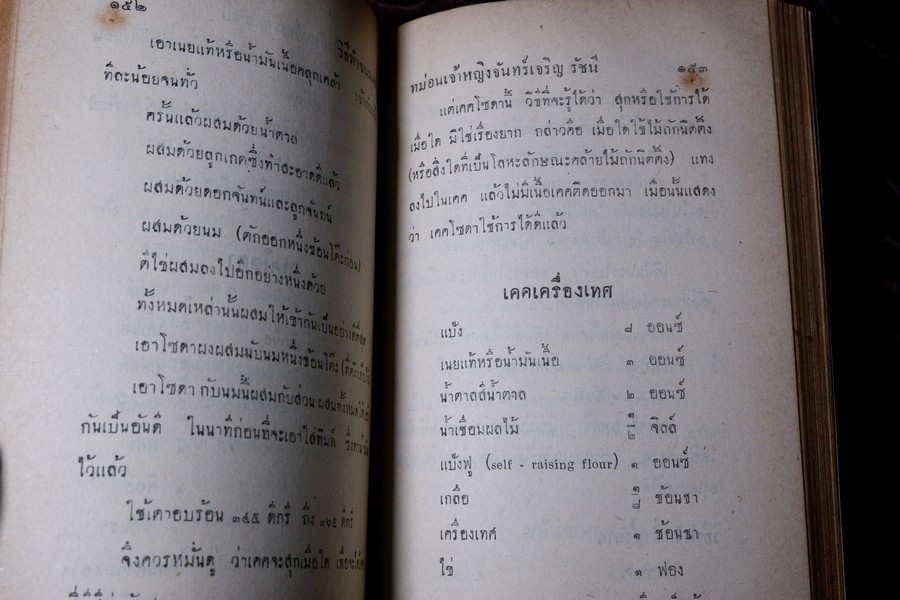 ๑๕๒
เอาเนยแท้หรือน้ำมันเนื้อคลุกเคล้า
ทีละน้อยจนทั่ว
ครั้นแล้วผสมด้วยน้ำตาล
ผสมด้วยลูกเกตซึ่งทำสะอาดดีแล้ว
ผสมด้วยดอกจันทน์และลูกจันทน์
ผสมด้วยนม (ตักออกหนึ่งช้อนโต๊ะก่อน)
ตีไข่ผสมลงไปอีกอย่างหนึ่งด้วย
ทั้งหมดเหล่านั้นผสมให้เข้ากันเป็นอย่างดีที่สุด
เอาโซดาผงผสมนับนมหนึ่งช้อนโต๊ะ
เอาโซดา กับนมนี้ผสมกับส่วน ผสมทั้งหมด
กันเป็นอันดี ในนาทีก่อนที่จะเอาใส่พิมพ์
ไว้แล้ว
ใช้เตาอบร้อน ๓๔๕ ดีกรี ถึง ๓๖๕ ดีกรี
จึงควรหมั่นดู ว่าเคคจะสุกเมื่อใด
หม่อนเจ้าหญิงจันทร์เจริญ รัชนี
๑๕๓
แต่เคคโซดานี้ วิธีที่จะรู้ได้ว่า สุกหรือใช้การได้
เมื่อใด มิใช่เรื่องยาก กล่าวคือ เมื่อใดใช้ไม้ถักนิตติ้ง
(หรือสิ่งใดที่เป็นโลหะลักษณะคล้ายไม้ถักนิตติ้ง) แทง
ลงไปในเคค แล้วไม่มีเนื้อเคคติดออกมา เมื่อนั้นแสดง
ว่า เคคโซดาใช้การได้ดีแล้ว
เคคเครื่องเทศ
แป้ง ๘ ออนซ์
เนยแท้หรือน้ำมันเนื้อ ๓ ออนซ์
น้ำตาลสีน้ำตาล ๒ ออนซ์
น้ำเชื่อมผลไม้ ๑/๒ จิลล์
แป้งฟู (self - raising flour) ๑ ออนซ์
เกลือ ๑/๘ ช้อนชา
เครื่องเทศ ๑ ช้อนชา
ไข่ ๑ ฟอง